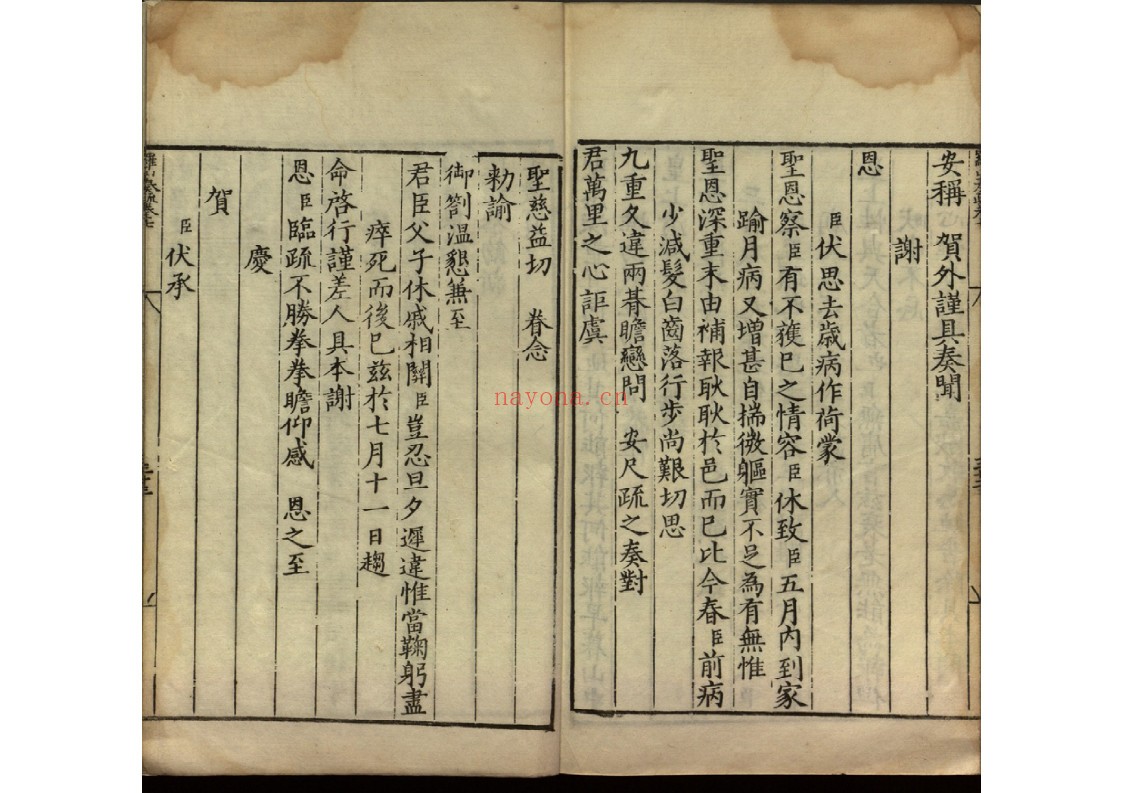 安稱　賀外謹具奏聞
謝
恩
臣伏思去歲病作荷蒙
聖恩察臣有不獲巳之情容臣休致臣五月內到家
踰月病又增甚自揣微軀實不足為有無惟
聖恩深重未由補報耿耿於邑而已比今春臣前病
少減髮白齒落行步尚艱切思
九重久違兩朞瞻戀問　安尺疏之奏對
君萬里之心詎虞
聖慈益切　眷念
勑諭
御劄溫懇兼至
君臣父子休戚相關臣豈忍旦夕遲違惟當鞠躬盡
瘁死而後巳茲於七月十一日趨
命啓行謹差人具本謝
恩臣臨疏不勝拳拳瞻仰感　恩之至
慶
賀
臣伏承
nayona.cn